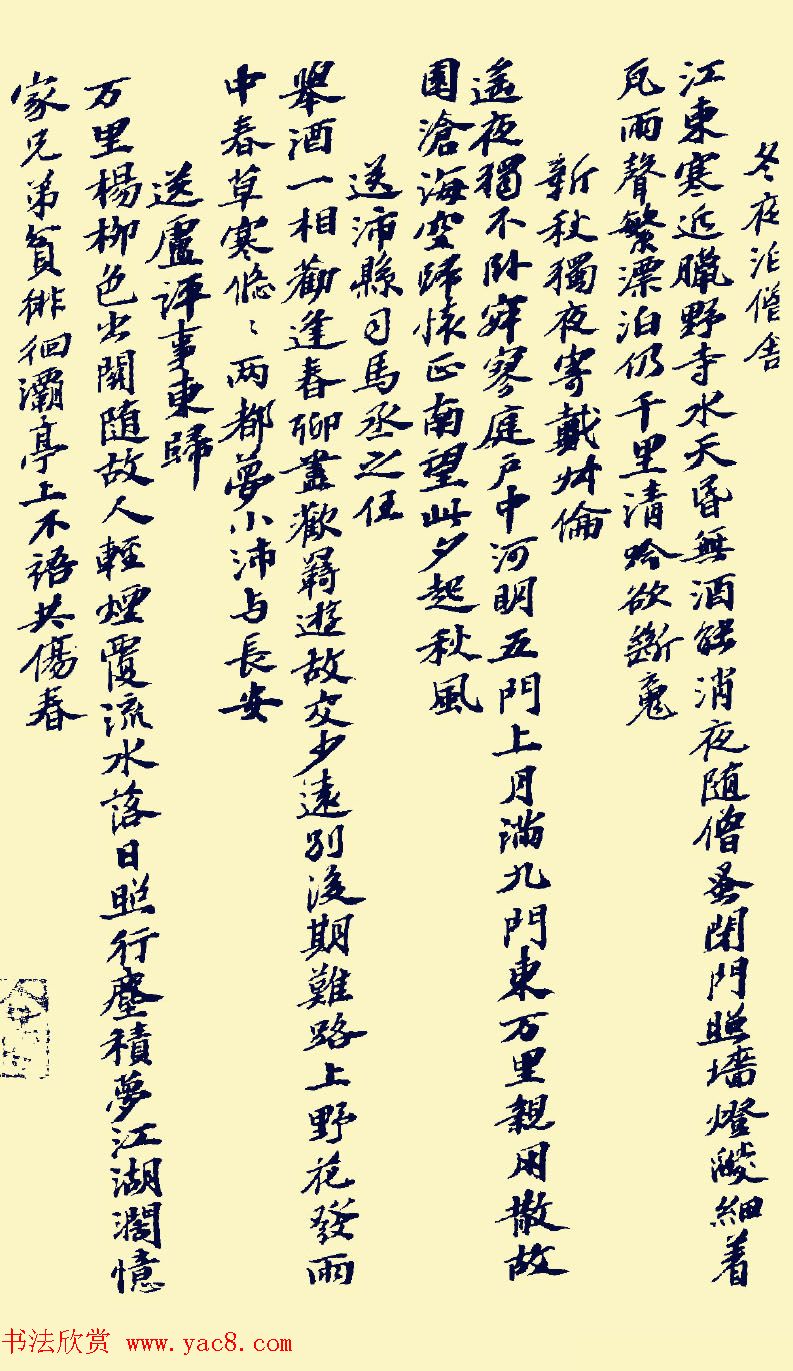 冬夜泊僧舍
江東寒近臘野寺水天昏無酒能消夜随僧蚤閉門照墻燈𦦨細着
瓦雨聲繁漂泊仍千里清吟欲斷魂
新秋獨夜寄戴叔倫
遥夜獨不卧寂寥庭户中河明五門上月满九門東万里親用散故
園滄海空歸懐正南望此夕起秋風
送沛縣司馬丞之任
舉酒一相勸逢春聊盡歡羇遊故交少遠別後期難路上野花發雨
中春草寒悠〻两都夢小沛与長安
送盧評事東歸
万里楊柳色出關随故人輕煙覆流水落日照行塵積夢江湖濶憶
家兄弟貧徘徊灞亭上不語共傷春
书法欣赏 www.yac8.com